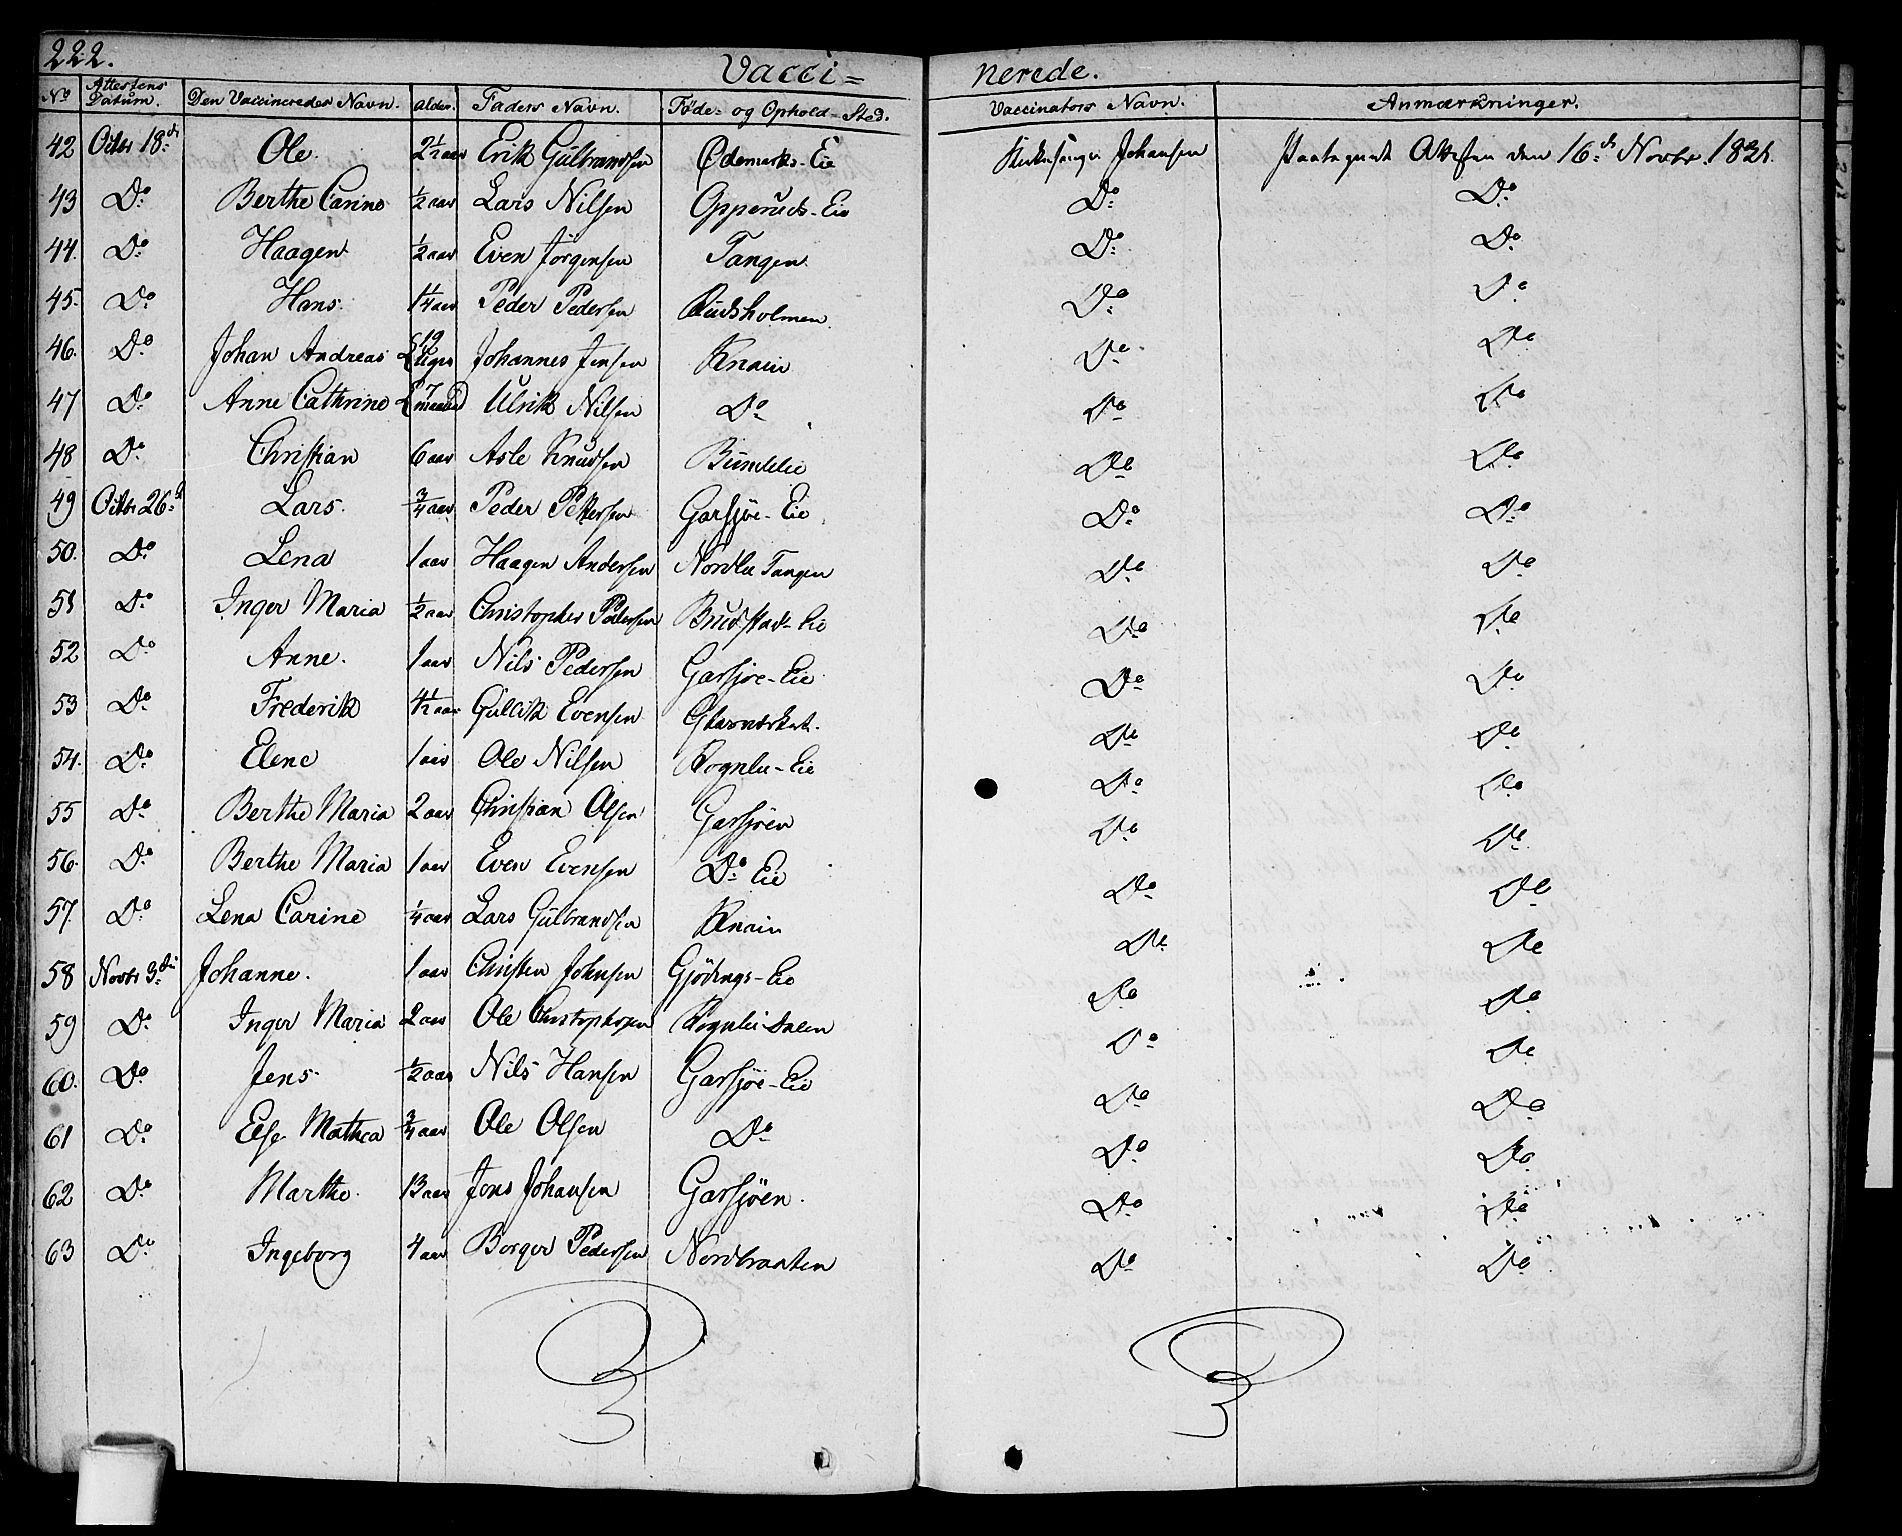 222. Vacci= nerede.
No Attestens Datum. Den Vaccineredes Navn. alder. Faders Navn. Føde- og Ophold-Sted. Vaccinators Navn. Anmærkninger.
42 Octbr 18de Ole. 2½ aar Erik Gulbrandsen Ødemarks-Eie Kirkesanger Johansen Paategnet Attesten den 16de Novbr. 1821.
43 Do Berthe Carine ½ aar Lars Nilsen Opperuds-Eie Do Do
44. Do Haagen ½ aar Even Jørgensen Tangen Do Do
45. Do Hans. 1¼ aar Peder Pedersen Rudsholmen Do Do
46. Do Johan Andreas 19 Uger Johannes Jensen Knain Do Do
47 Do Anne Cathrine 7 maaned Ulrik Nilsen Do Do Do
48 Do Christian 6 aar Asle Knudsen Bundelie Do Do
49 Octbr 26de Lars. ¾ aar Peder Pettersen Garsjøe-Eie Do Do
50. Do Lena 1 aar Haagen Andersen Nordlie Tangen Do Do
51 Do Inger Maria ½ aar Christopher Pedersen Brudstad-Eie Do Do
52 Do Anne. 1 aar Nils Pedersen Garsjøe-Eie Do Do
53 Do Frederik 4½ aar Gullik Evensen Glasværket. Do Do
54. Do Elene 1 aar Ole Nilsen Rognlie-Eie Do Do
55 Do Berthe Maria 2 aar Christian Olsen Garsjøen Do Do
56. Do Berthe Maria 1 aar Even Evensen Do Eie Do Do
57. Do Lena Carine ¼ aar Lars Gulbrandsen Knain Do Do
58 Novbr 3die Johanne. 1 aar Christen Johnsen Gjødings-Eie Do Do
59 Do Inger Maria 2 aar Ole Christophersen Rognlie-Dalen Do Do
60. Do Jens. ½ aar Nils Hansen Garsjøe-Eie Do Do
61 Do Else Mathea ¾ aar Ole Olsen Do Do Do
62 Do Marthe. 13 aar Jens Johansen Garsjøen. Do Do
63 Do Ingeborg 4 aar Borger Pedersen Nordbraaten Do Do